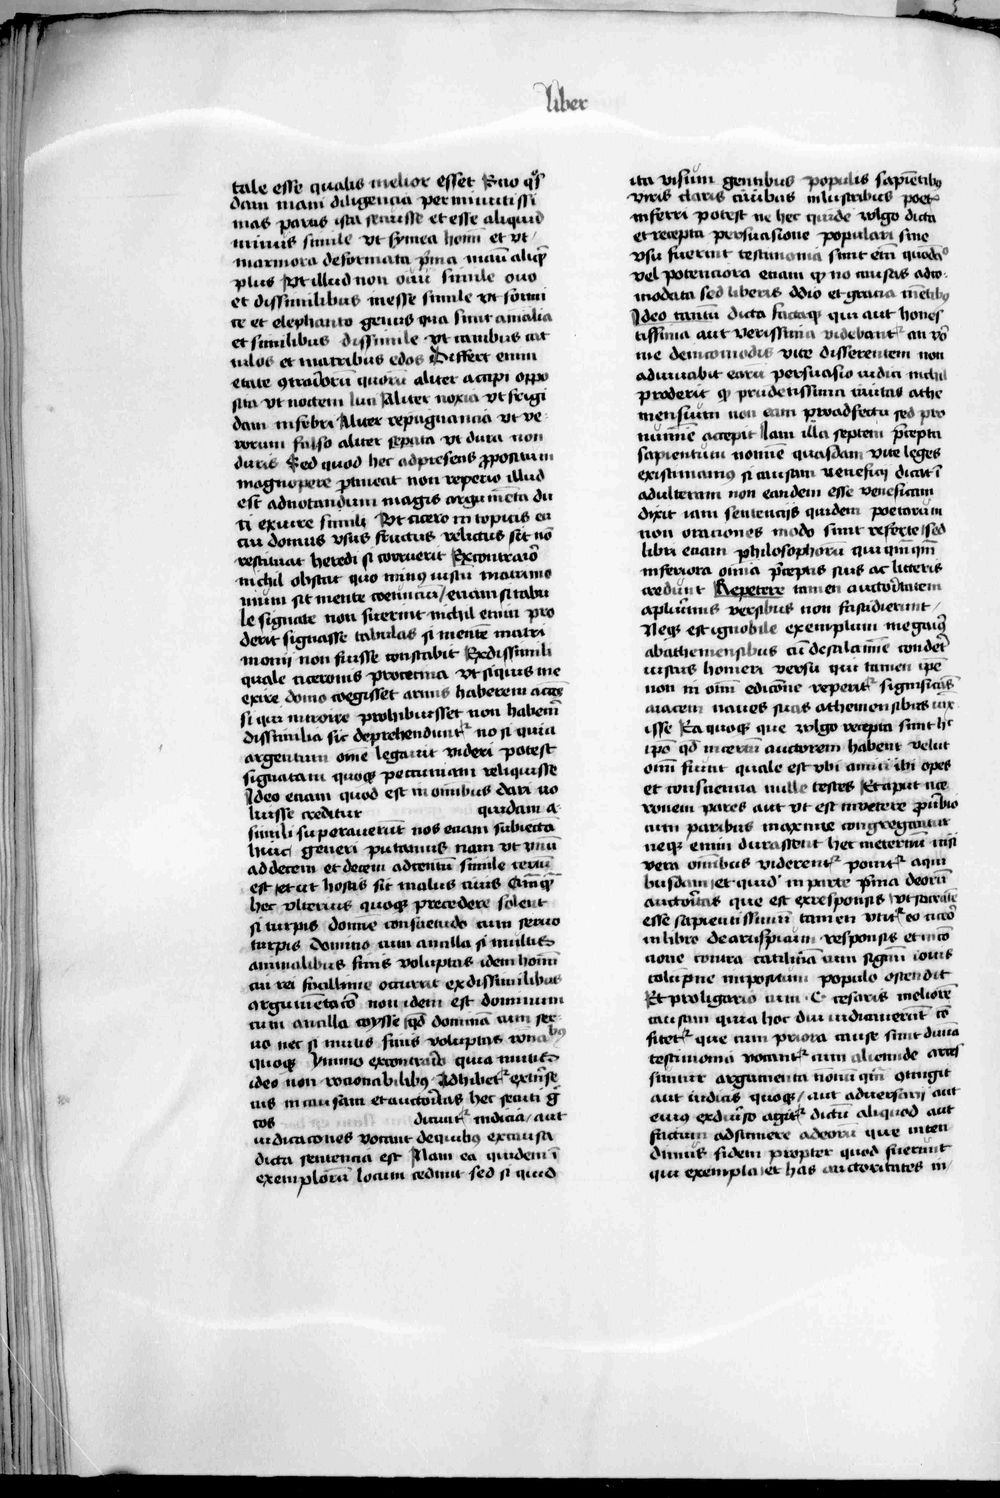 liber
tale esse qualis melior esset Scio qͦsͣ
dam inani diligencia per minutissi
mas partis ista secuisse et esse aliquid
minus simile vt symea homī et vt /
marmora deformata pͥma manū aliqͥd
plus Vt illud non ouū simile ouo
et dissimilibus inesse simile vt formi
ce et elephanto genus qua sunt aīalia
et similibus dissimile vt canibus cat
tulos et matribus edos Differt enim
etate ꝯtrariorū quorū aliter accipi oppo
sita vt noctem luci Aliter noxia vt frigi
dam in febri Aliter repugnancia vt ve-
rorum falso aliter sepata vt dura non
duris Sed quod hec ad presens ꝓpositum
magnopere ꝑtineat non reperio illud
est adnotandum magis argumēta du
ci ex iure simili Vt cicero in topicis eū
cui domus vsus fructus relictus sit nō
restituat heredi si corruerit Ex contrario
nichil obstat quo minꝰ iustū matrimo
nium sit mente coeuntiū / eciam si tabu
le signate non fuerint nichil enim pro
derit signasse tabulas si mentē matri
monii non fuisse constabit Ex dissimili
quale ciceronis pro cecina vt si quis me
exire domo coegisset armis haberem actōe
si qui introire prohibuisset non haberē
dissimilia sic deprehendunt᷑ nō si quia
argentum omē legauit videri potest
signatam quoqꝫ pecuniam reliquisse
Ideo eciam quod est in omnibus dari uo
luisse creditur quidam a-
simili superauerūt nos eciam subiectā
huic generi putamus nam vt vnū
ad decem et decem ad centū simile certū
est et ut hostis sit malus ciuis
hec vlterius quoqꝫ procedere solent
si turpis domine consuetudo cum seruo
turpis domino cum ancilla si mutis
animalibus finis voluptas idem homī
cui rei facillime occurrit ex dissimilibus
argumētacō non idem est dominum
cum ancilla coysse qd̄ dominā cum ser-
uo nec si mutis finis voluptas rōnabꝰ
quoqꝫ ymmo ex contrario quia mutis
ideo non racionabilibꝰ Adhibet᷑ extrīse
cus in causam et auctoritas hec secuti g
cos dicunt᷑ iudicia / aut
iudicacones vocant de quibꝰ ex causa
dicta sentencia est Nam ea quidem ī
exemplorū locum cedunt sed si quid
ita visum gentibus populis sapiētibꝰ
viris claris ciuibus inlustribus poetꝭ
in ferri potest ne hec quide volgo dicta
et recepta persuasione populari sine
vsu fuerint testimonia sunt etīm quodāͦ
vel potenciora eciam qͥ no causis adco-
modata sed liberis odio et gracia mētibꝰ
Ideo tantū dicta factaqꝫ qui aut hones
tissima aut verissima videbant᷑ an vͦo
me de incomodis vite disserentem non
adiuuabit earū persuasio iudici nichil
proderit qͥ prudētissima ciuitas athe
mensium non eam pro adfectu sed pro
numīe accepit Iam illa septem p̄cepta
sapientum nomīe quasdam vite leges
existimamꝰ si causam venefici dicat ī
adulteram non eandem esse veneficam
dixit iam sentencijs quidem poetarum
non oraciones modo sunt referte sed
libri eciam philosophorū qui qm̄qm̄
inferiora omīa p̄ceptis suis ac litteris
credunt Repetere tamen auctoritatem
a plurimis versibus non fastidierunt /
Neqꝫ est ignobile exemplum megariꝰ
ab atheniensibus cū de salamīe condeͬt
victus homeri versu qui tamen ipē
non in omī edicōne reperit᷑ significās
aiacem naues suas atheniensibus iūx
isse Ea quoqꝫ que volgo recepta sunt hͦ
ipō qd̄ incertū auctorem habent velut
omī fiunt quale est vbi amici ibi opes
et consciencia mille testes Et aput cice
ronem pares aut vt est in vetere ꝓuerbio
cum paribus maxime congregantur
neqꝫ enim durassent hec in eternū nisi
vera omībus viderent᷑ ponit᷑ a qui
busdam et quid in parte pͥma deorū
auctoritas que est ex responsis vt socratē
esse sapientissimū tamen vtit᷑ eo cicō
in libro de aruspicum responsis et in cō
cione contra catilinā cum signū iouis
colūpne impositum populo ostendit
Et pro ligario cum C cesaris meliorē
causam quia hoc dii iudicauerūt cō
fitet᷑ que cum priora cause sint diuīa
testimonia vocant᷑ cum aliunde arces
suntur argumenta nonnū qͣm ꝯtingit
aut iudicis quoqꝫ / aut aduersarij aut
eius ex diuͦso agit᷑ dictū aliquod aut
factum adsumere ad eorū que inten
dimus fidem propter quod fuerunt
qui exempla et has auctoritates in /